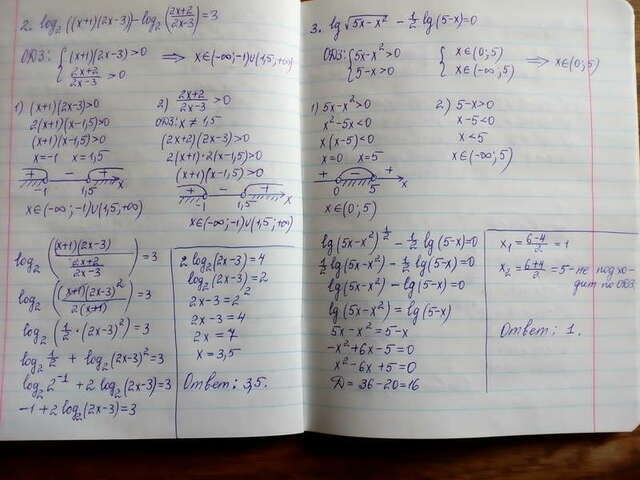 2. log₂((x+1)(2x-3)) - log₂(2x+2/2x-3) = 3
ОДЗ: { (x+1)(2x-3)>0
2x+2/2x-3 > 0
⟹ x∈(-∞;-1)∪(1,5;+∞)
1) (x+1)(2x-3)>0
2(x+1)(x-1,5)>0
(x+1)(x-1,5)>0
x=-1 x=1,5
+ - +
-1 1,5 x
x∈(-∞;-1)∪(1,5;+∞)
2) 2x+2/2x-3 > 0
ОДЗ: x≠1,5
(2x+2)(2x-3)>0
2(x+1)·2(x-1,5)>0
(x+1)(x-1,5)>0
+ - +
-1 1,5 x
x∈(-∞;-1)∪(1,5;+∞)
log₂((x+1)(2x-3)/(2x+2/2x-3)) = 3
log₂((x+1)(2x-3)²/2(x+1)) = 3
log₂(1/2·(2x-3)²) = 3
log₂ 1/2 + log₂(2x-3)² = 3
log₂ 2⁻¹ + 2 log₂(2x-3) = 3
-1 + 2 log₂(2x-3) = 3
2 log₂(2x-3) = 4
log₂(2x-3) = 2
2x-3 = 2²
2x-3 = 4
2x = 7
x = 3,5
Ответ: 3,5.
3. lg √5x-x² - 1/2 lg(5-x) = 0
ОДЗ: { 5x-x²>0
5-x>0
{ x∈(0;5)
x∈(-∞;5)
⟹ x∈(0;5)
1) 5x-x²>0
x²-5x<0
x(x-5)<0
x=0 x=5
+ - +
0 5 x
x∈(0;5)
2) 5-x>0
x-5<0
x<5
x∈(-∞;5)
lg(5x-x²)^1/2 - 1/2 lg(5-x)=0
1/2 lg(5x-x²) - 1/2 lg(5-x)=0
lg(5x-x²) - lg(5-x)=0
lg(5x-x²) = lg(5-x)
5x-x² = 5-x
-x²+6x-5=0
x²-6x+5=0
D = 36-20=16
x₁ = 6-4/2 = 1
x₂ = 6+4/2 = 5 - не подхо-
дит по ОДЗ
Ответ: 1.